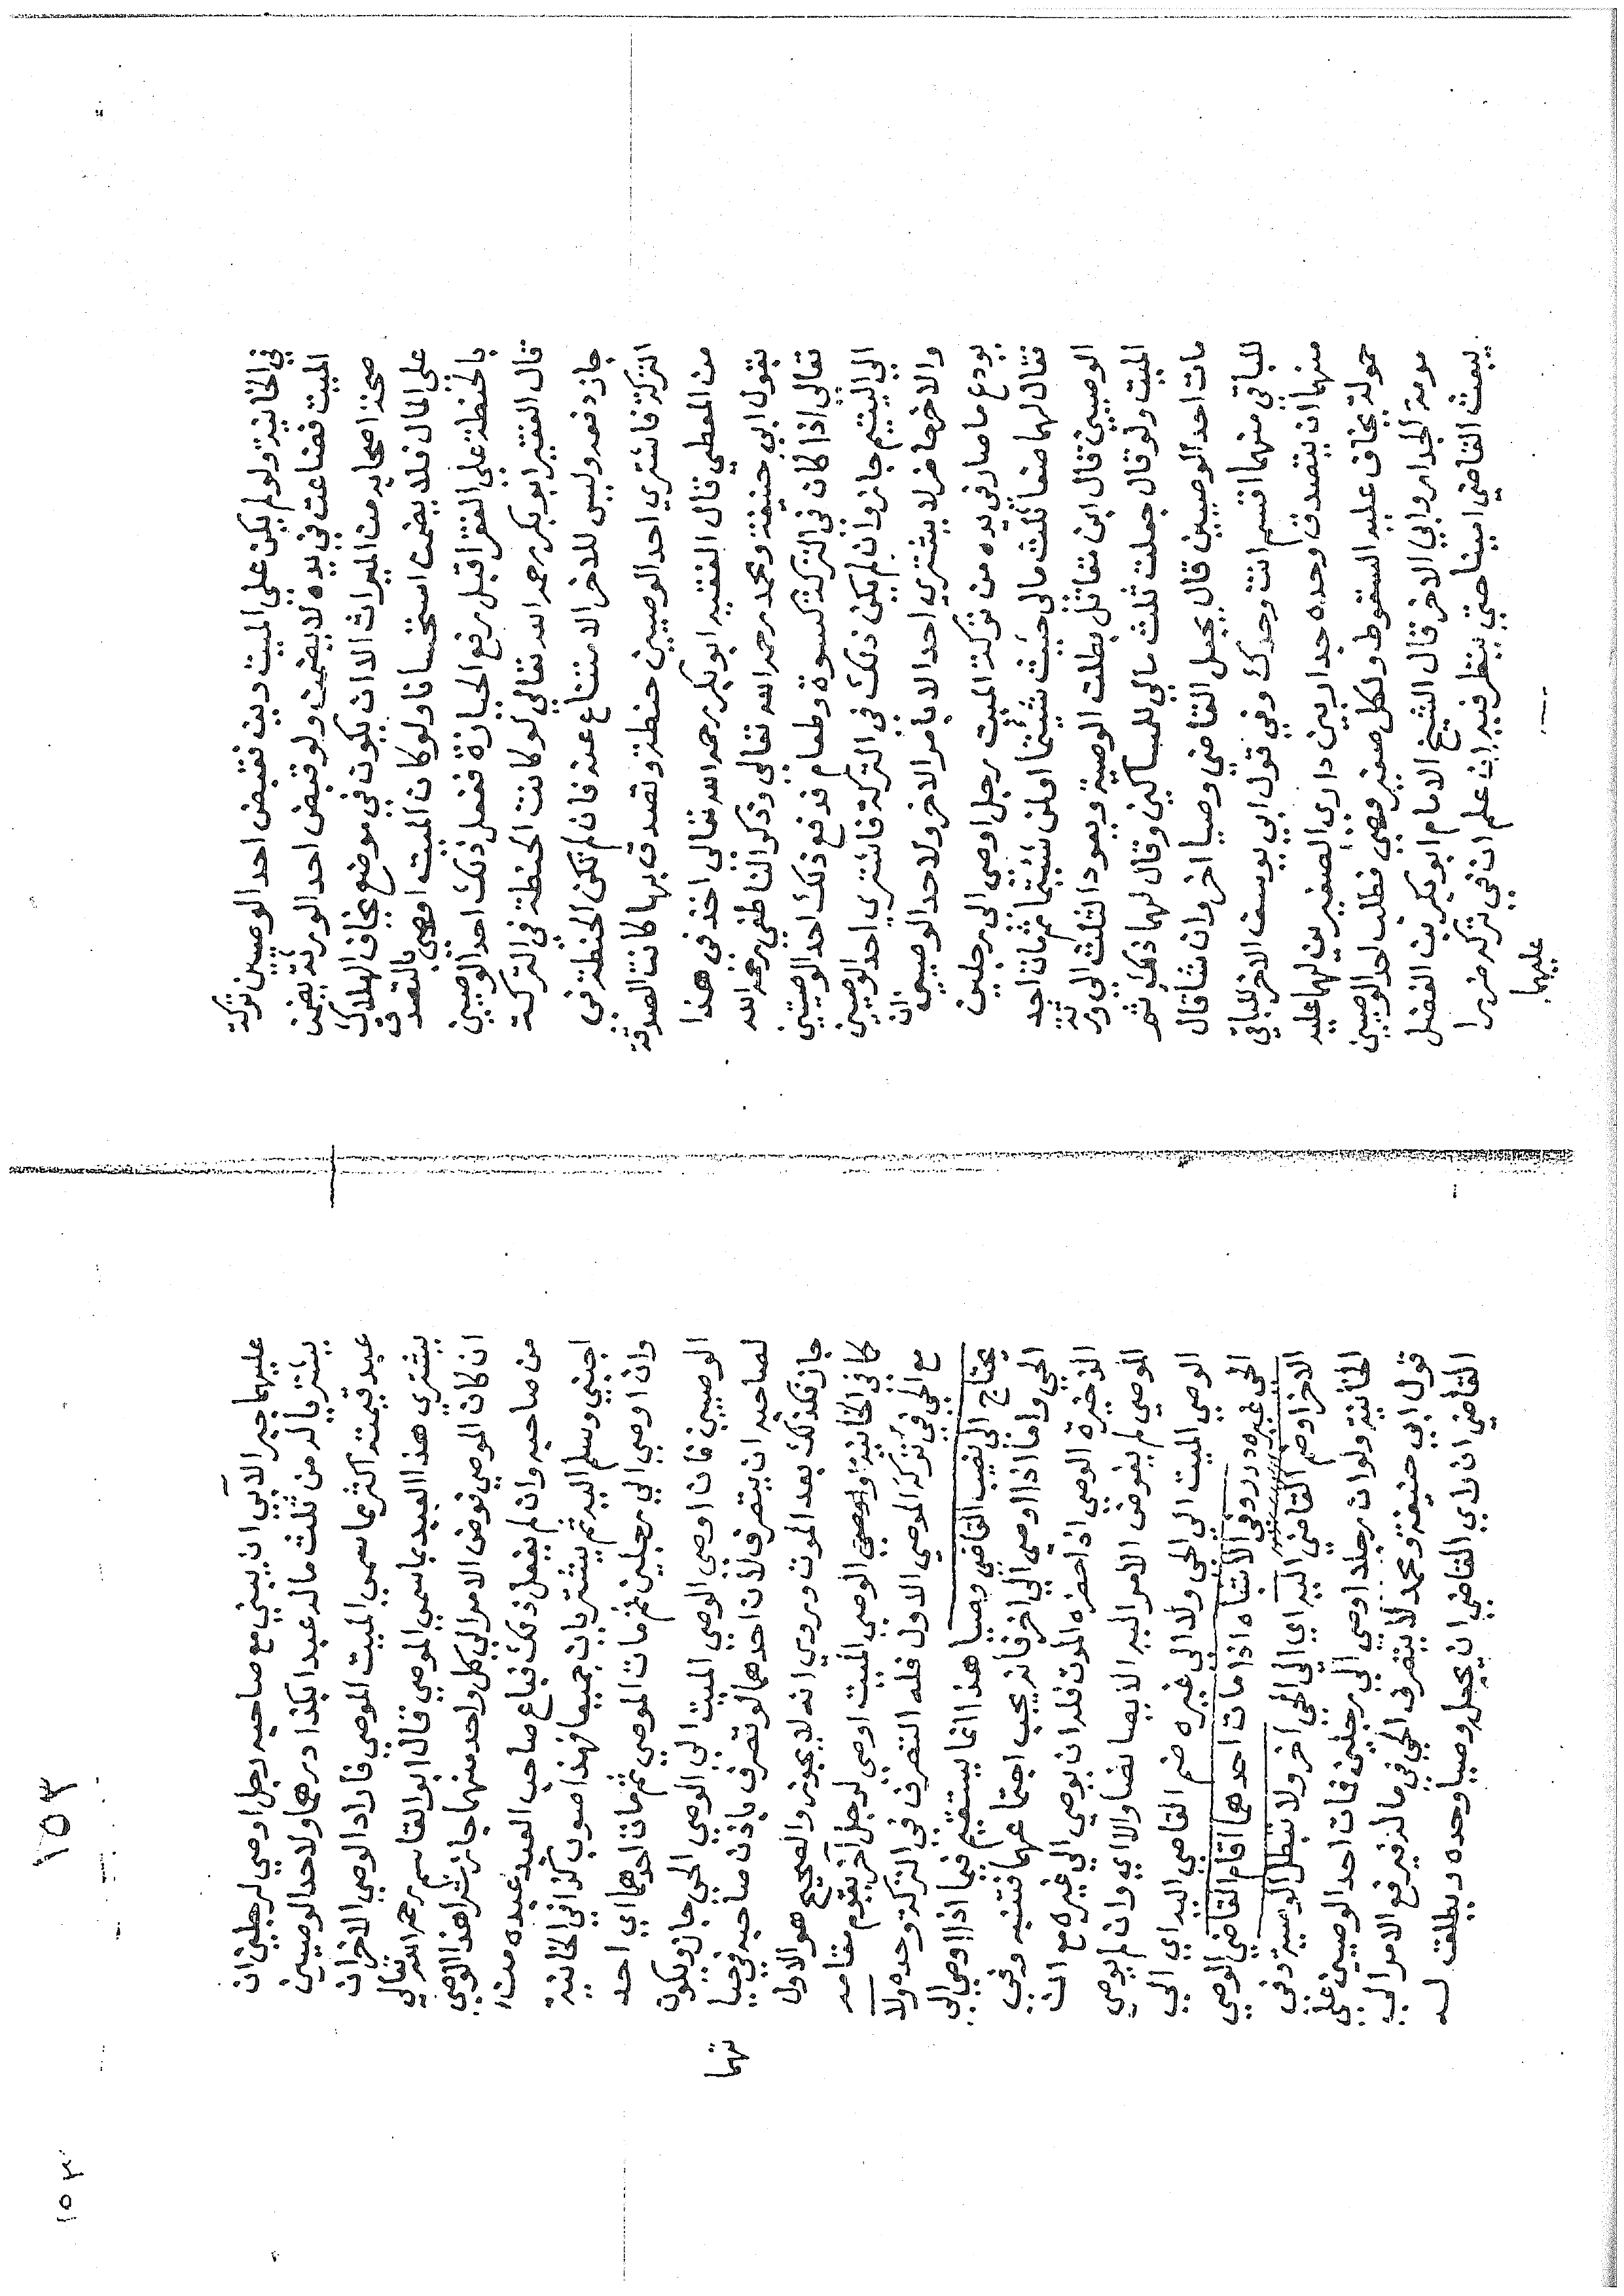 في الخانية ولو لم يكن على الميت دين فقبض احد الوصيين تركة
الميت فضاعت في يده لا يضمن ولو قبض احد الورثة يضمن
صحة اصحابه من الميراث الا ان يكون في موضع يخاف الهلاك
على المال فلا يضمن استحسانا ولو كان الميت اوصى بالتصدق
بالحنطة على الفقرا قبل رفع الجنازة ففعل ذلك احد الوصيين
قال الفقيه ابو بكر رحمه الله تعالى لو كانت الحنطة في التركة
جاز دفعه وليس للاخر الامتناع عنه فان لم تكن الحنطة في
التركة فاشترى احد الوصيين حنطة وتصدق بها كانت الصدقة
من المعطي قال الفقيه ابو بكر رحمه الله تعالى اخذ في هذا
بقول ابي حنيفة ومحمد رحمه الله تعالى وذكر الناطفي رحمه الله
تعالى اذا كان في التركة كسوة وطعام فدفع ذلك احد الوصيين
الى اليتيم جاز وان لم يكن ذلك في التركة فاشترى احد الوصيين
والاخر حاضر لا يشتري احد الا بامر الاخر ولاحد الوصيين ان
يودع ما صار في يده من تركة الميت رجل اوصى الى رجلين
فقال لهما ضعا ثلث مالي حيث شيتما او لمن شيتما ثم مات احد
الوصيين قال ابن مقاتل بطلت الوصية ويعود الثلث الى ورثة
الميت ولو قال جعلت ثلث مالي للمساكين وقال لهما ذلك ثم
مات احد الوصيين قال يجعل القاضي وصيا اخر وان شا قال
للباقي منهما اقسم انت وحدك وفي قول ابي يوسف الاخر للباقي
منهما ان يتصدق وحده جدار بين داري الصغيرين لهما عليه
حمولة يخاف عليه السقوط ولكل صغير وصي فطلب احد الوصيين
مرمة الجدار وابى الاخر قال الشيخ الامام ابو بكر بن الفضل
يبعث القاضي امينا حتى ينظر فيه ان علم ان في تركه ضررا
عليهما
١٥٣
عليهما جبر الآبي ان يبني مع صاحبه رجل اوصى لرجلين ان
يشتريا له من ثلث ماله عبدا بكذا درهما ولاحد الوصيين
عبد قيمته اكثر مما سمى الميت الموصي فاراد الوصي الاخر ان
يشتري هذا العبد بما سمى الموصي قال ابو القاسم رحمه الله تعالى
ان كان الموصي فوض الامر الى كل واحد منهما جاز شرا هذا الوصي
من صاحبه وان لم يفعل ذلك فباع صاحب العبد عبده من
اجنبي وسلم اليه ثم يشتريان جميعا فهذا صوب كذا في الخانية
وان اوصى الى رجلين ثم مات الموصي ثم مات احدهما اي احد
الوصيين فان اوصى الوصي الميت الى الوصي الحي جاز ويكون
لصاحبه ان يتصرف لان احدهما لو تصرف باذن صاحبه في حيا
تهما
جاز فكذلك بعد الموت وروي انه لا يجوز والصحيح هو الاول
كما في الخانية واوصى الوصي الميت اوصى لرجل آخر يقوم مقامه
مع الحي في تركة الموصي الاول فله التصرف في التركة وحده ولا
يحتاج الى نصب القاضي وصيا هذا انما يستقيم فيما اذا اوصى الى
الحي واما اذا اوصى الى اخر فانه يجب اجتماعهما فتنبه وفي
الذخيرة الوصي اذا حضره الموت فله ان يوصي الى غيره مع ان
الموصي لم يفوض الامر اليه الايصا نصا والا اي وان لم يوصي
الوصي الميت الى الحي ولا الى غيره ضم القاضي اليه اي الى
الحي غيره درر وفي الاشباه اذا مات احدهما اقام القاضي الوصي
الاخر او ضم القاضي اليه اي الى الحي اخر ولا تبطل الوصية وفي
الخانية ولو ان رجلا اوصى الى رجلين فمات احد الوصيين على
قول ابي حنيفة ومحمد لا يتصرف الحي في ماله فيرفع الامر الى
القاضي ان راى القاضي ان يجعل وصيا وحده ويطلق له
١٥٣